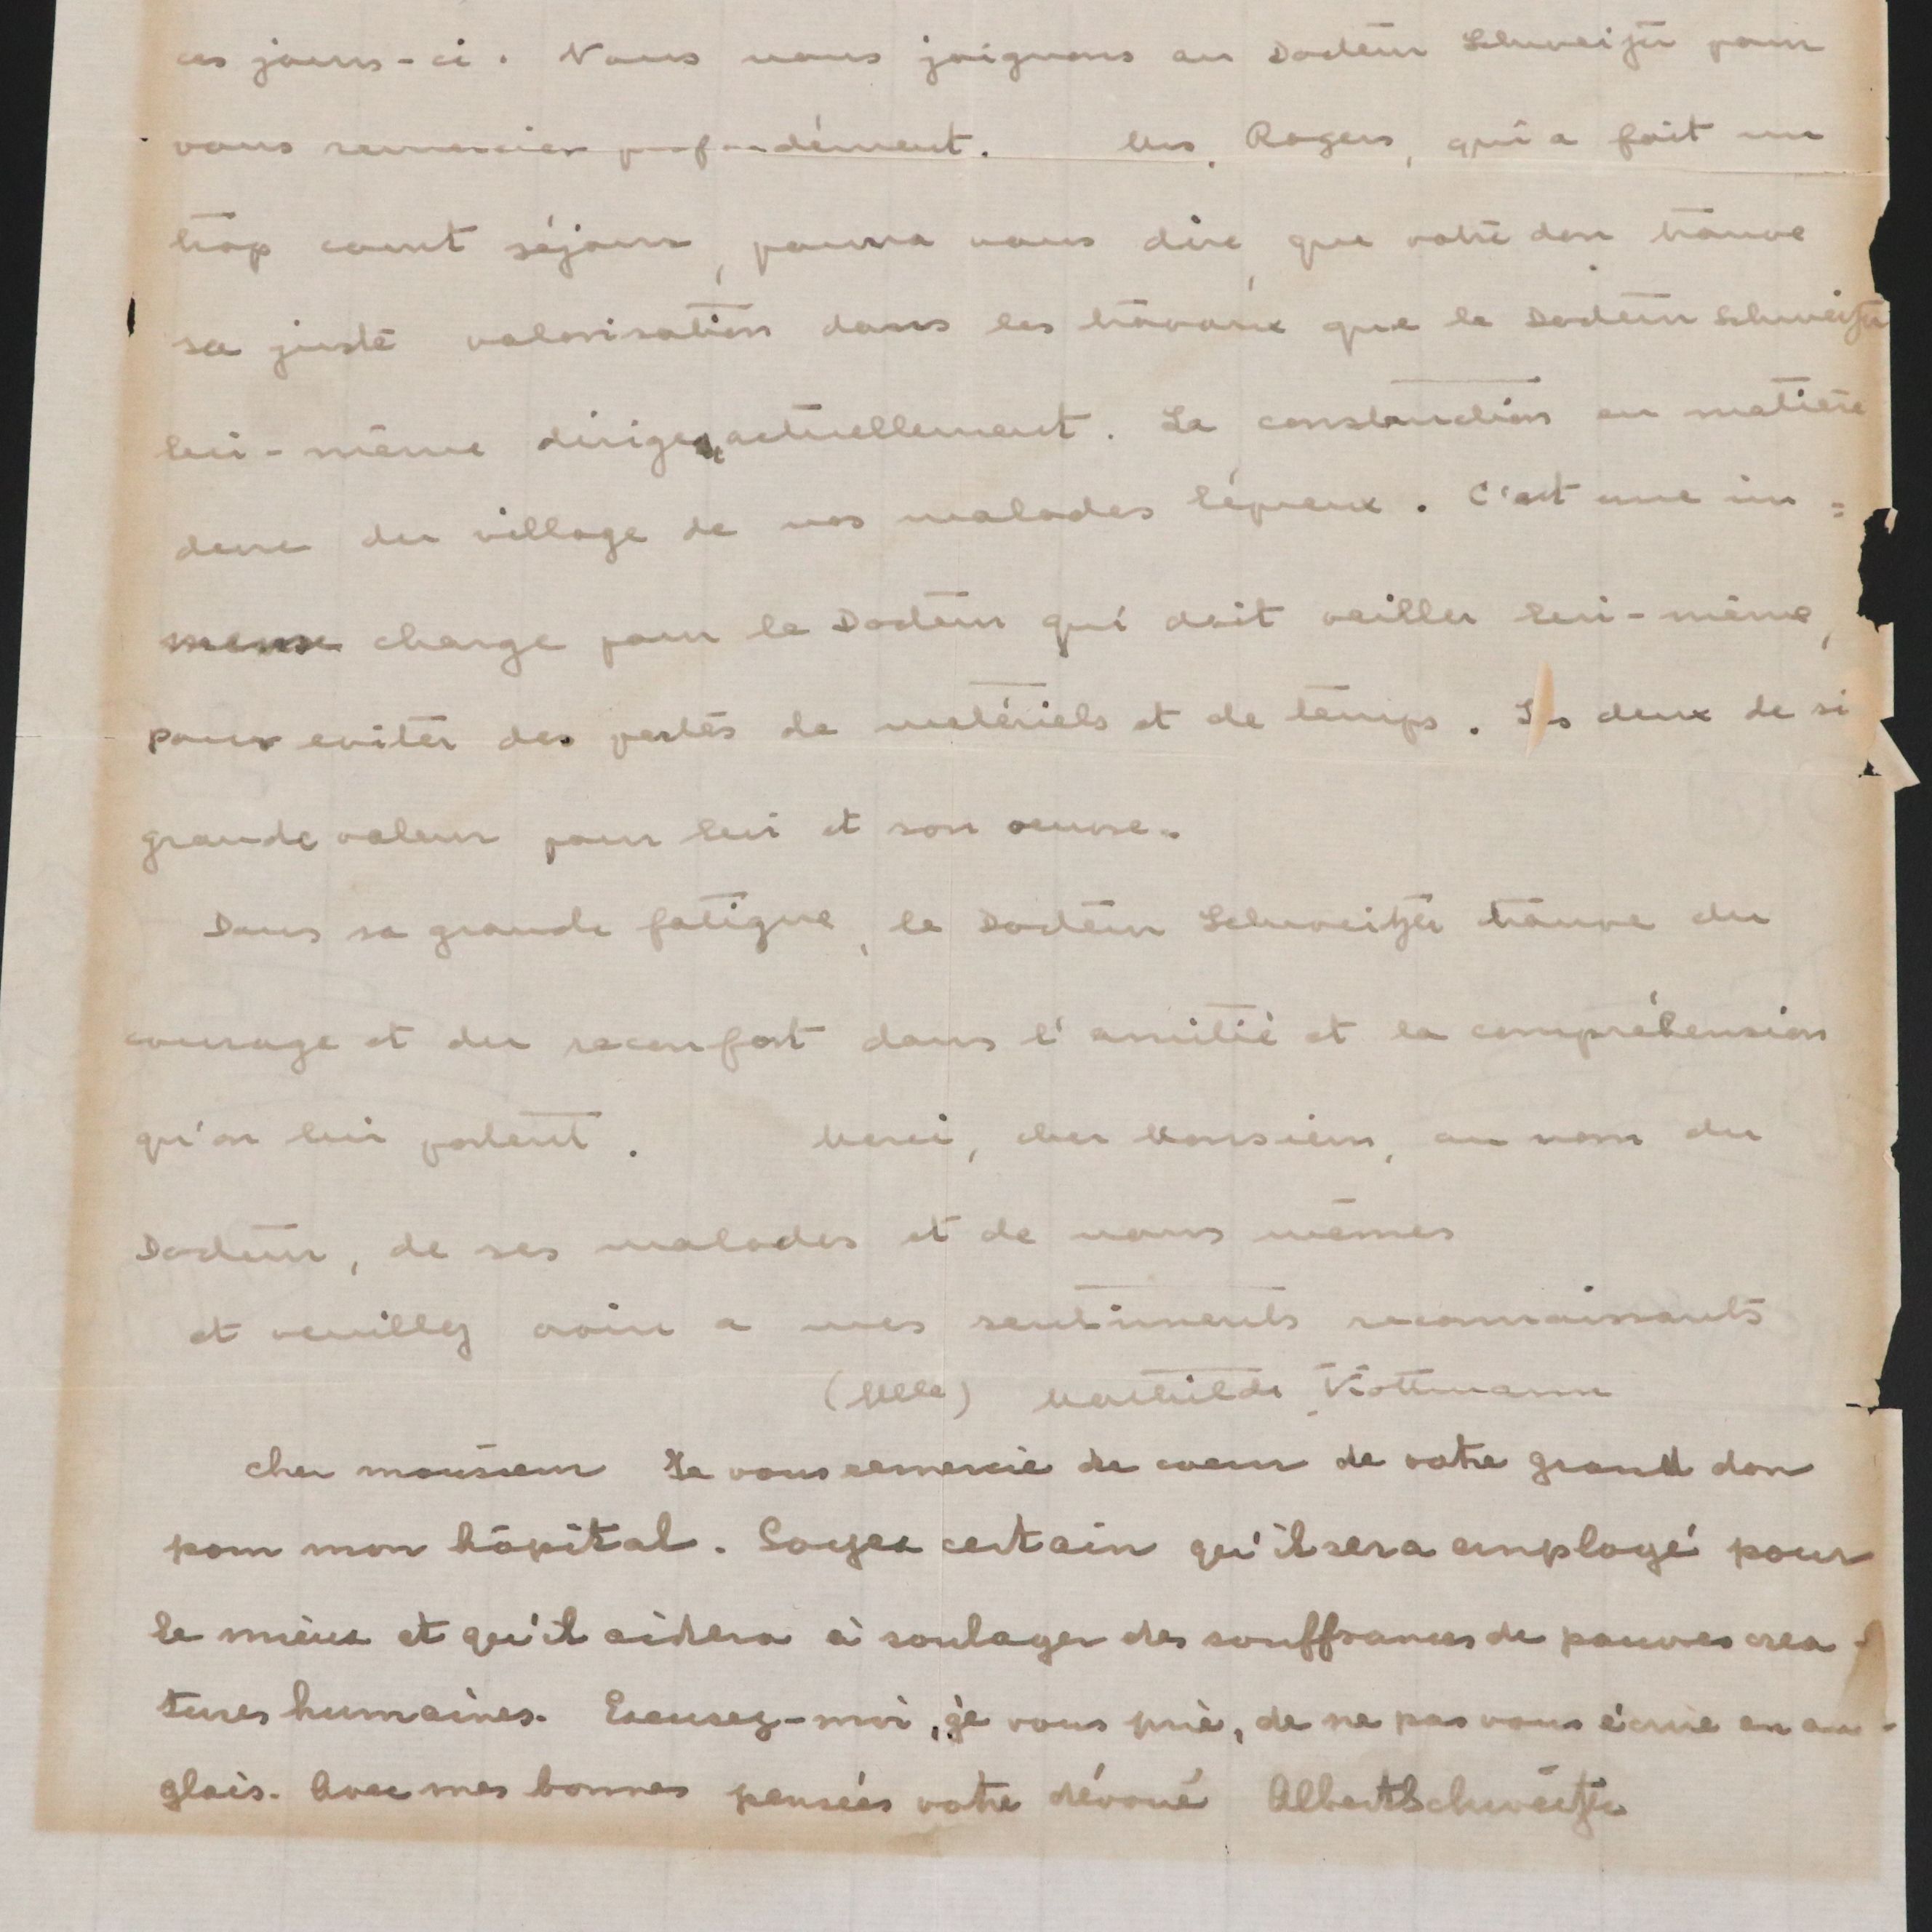 ces jours-ci. Nous nous joignons au Docteur Schweitzer pour
vous remercier profondément. Mrs. Rogers, qui a fait un
trop court séjour, pourra vous dire, que votre don trouve
sa juste valorisation dans les travaux que le Docteur Schweitzer
lui-même dirige actuellement. La construction en matière
dure du village de nos malades lépreux. C'est une im=
mense charge pour le Docteur qui doit veiller lui-même,
pour eviter des pertes de matériels et de temps. Les deux de si
grande valeur pour lui et son oeuvre.
Dans sa grande fatigue, le Docteur Schweitzer trouve du
courage et du reconfort dans l'amitié et la compréhension
qu'on lui portent. Merci, cher Monsieur, au nom du
Docteur, de ses malades et de nous mêmes
et veuillez croire a mes sentiments reconnaissants
(Mlle) Mathilde Kottmann
cher monsieur Je vous remercie de coeur de votre grand don
pour mon hôpital. Soyez certain qu'il sera employé pour
le mieux et qu'il aidera à soulager des souffrances de pauvres crea-
tures humaines. Excusez-moi, je vous prie, de ne pas vous écrire en an-
glais. Avec mes bonnes pensées votre dévoué Albert Schweitzer